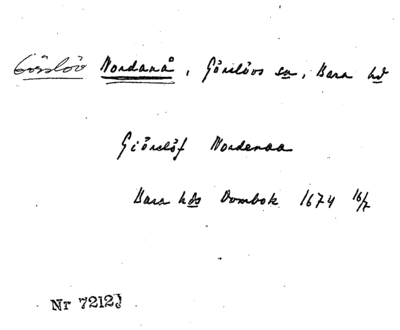 Görslöv Nordanå, Görslövs sn, Bara hd
Giörslöf Nordenaa
Bara hds Dombok 1674 16/7
Nr 7212